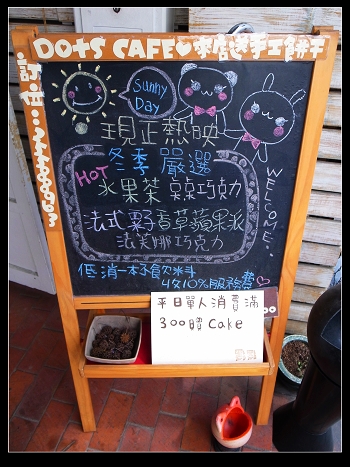 DOts CAFE♥來店送手工餅干
Sunny
Day
現正熱映
冬季嚴選
HOT
水果茶 哀哀巧克力
法式栗子香草蘋果派
法芙娜巧克力
WELCOME
低消一本飲料
4收10%服務費
平日單人消費滿
300贈Cake